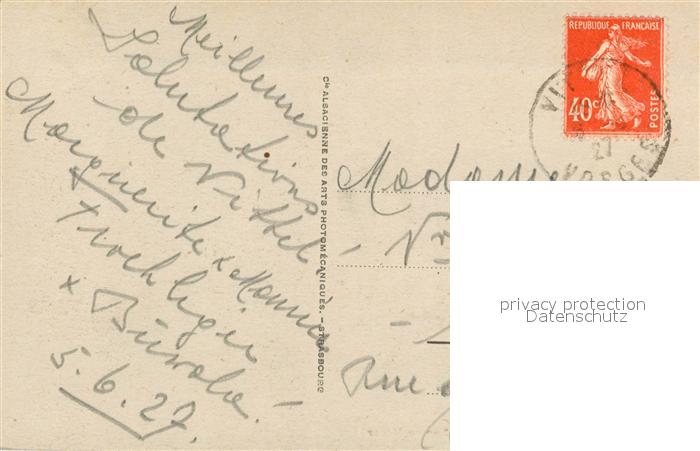 Meilleures
Salutations
de Vittel.
Marguerite x Maurice
x
5.6.27.
Cie ALSACIENNE DES ARTS PHOTOMÉCANIQUES. — STRASBOURG
REPUBLIQUE FRANÇAISE
40c
POSTES
VIT
27
VOSGES
Madame
Rue
privacy protection
Datenschutz